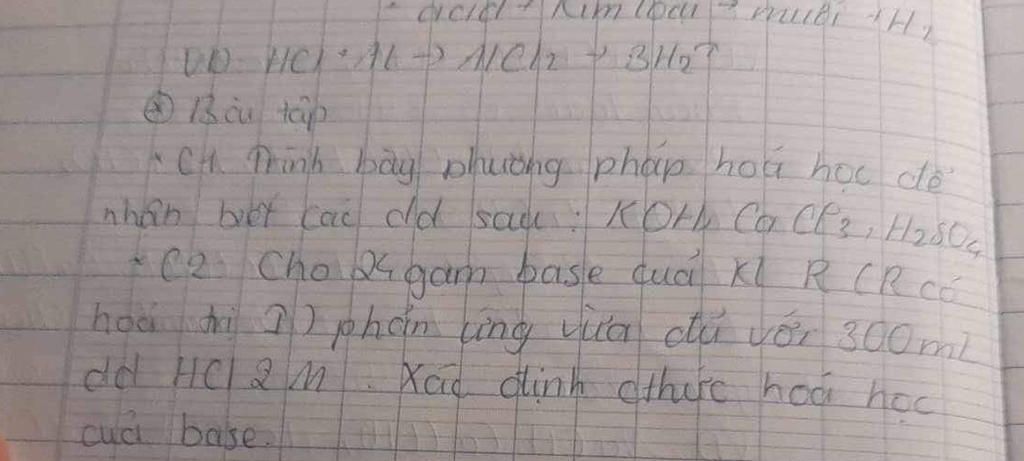 - acid + Kim loại → muối + H2
VD: HCl + Al → AlCl2 + 3H2?
* Bài tập
* C1. Trình bày phương pháp hoá học để
nhận biết các dd sau: KOH, CaCl2, H2SO4
* C2. Cho 24 gam base của Kl R (R có
hoá trị I) phản ứng vừa đủ với 300ml
dd HCl 2M. Xác định cthức hoá học
của base.